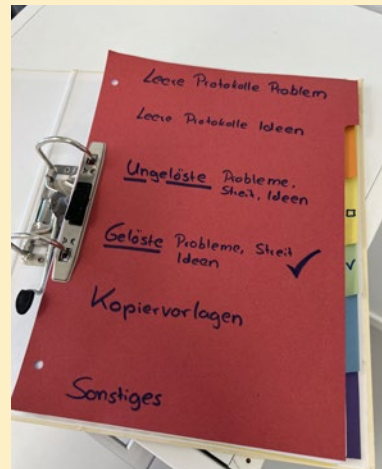 Leere Protokolle Problem
Leere Protokolle Ideen
Ungelöste Probleme,
Streit, Ideen
Gelöste Probleme, Streit
Ideen
Kopiervorlagen
Sonstiges